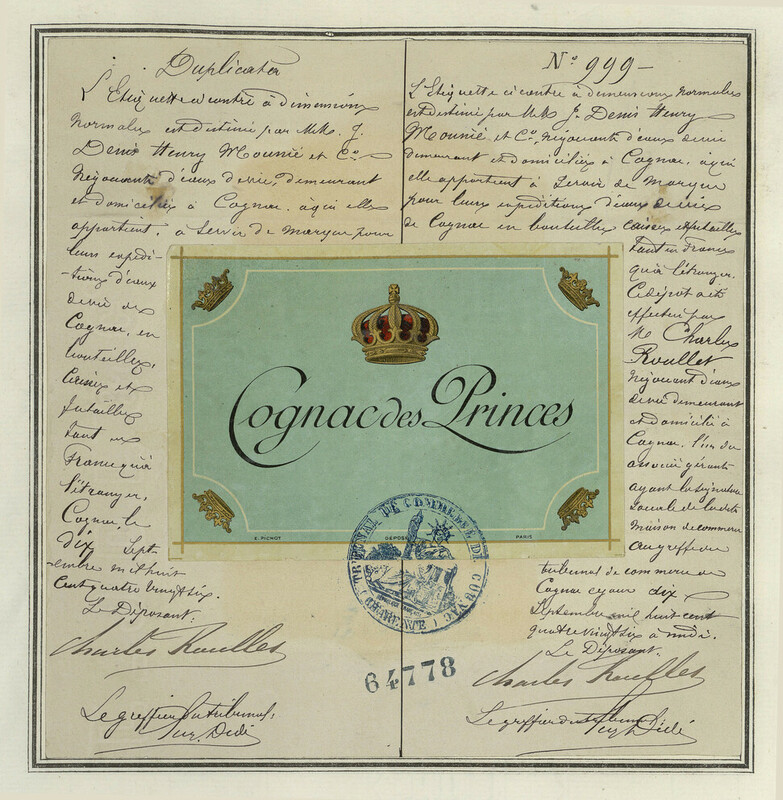 Duplicata
L'Etiquette ci contre à dimensions
normales est destiné par MMrs. J.
Denis Henry Mounié et Co.
Négociants d'eaux de vie, demeurant
et domiciliés à Cognac, à qui elle
appartient, à servir de marque pour
leurs expédi-
-tions d'eaux
de vie de
Cognac, en
bouteilles,
caisses et
futailles
tant en
France qu'à
l'étranger.
Cognac, le
dix Sept-
-embre mil huit
cent quatre vingt six.
Le Déposant:
Charles Roullet
Le greffier du tribunal,
Didé
No 999-
L'Etiquette ci contre à dimensions normales
est destiné par MMrs J. Denis Henry
Mounié et Co, Négociants d'eaux de vie
demeurant et domiciliés à Cognac, à qui
elle appartient à servir de marque
pour leurs expéditions d'eaux de vie
de Cognac en bouteilles caisses et futailles
tant en France
qu'à l'étranger.
Ce dépôt a été
effectué par
M Charles
Roullet
Négociant d'eaux
de vie demeurant
et domicilié à
Cognac, l'un des
associés gérants
ayant la signature
sociale de la dite
maison de commerce
au greffe du
tribunal de commerce de
Cognac ce jour dix
Septembre mil huit cent
quatre vingt six à midi.
Le Déposant.
Charles Roullet
Le greffier du tribunal
Didé
Cognac des Princes
E. PICHOT DÉPOSÉ PARIS
TRIBUNAL DE COMMERCE DE COGNAC
(CHARENTE)
64778